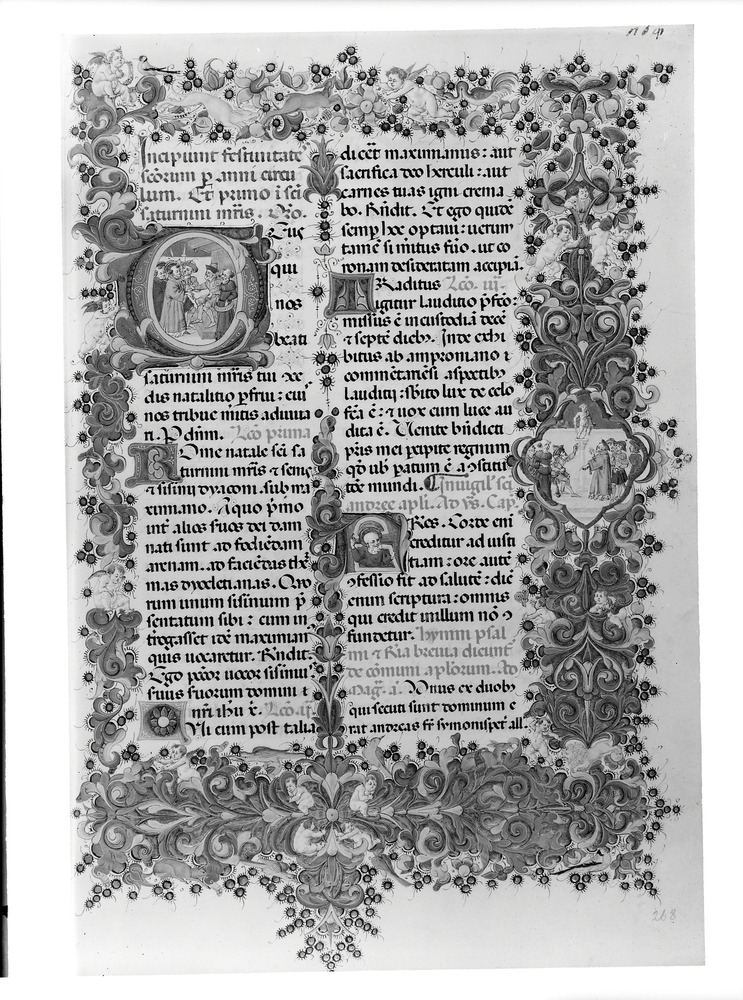 Incipiunt festiuitate
scõrum p anni circu
lum. Et primo i sci
saturnini mris. Oro.
Deus
qui
nos
beati
saturnini mris tui
natalitio pfrui: eiu
nos tribue mitis adiuua
ri. P dñm. Lco prima
Dme natale sci sa
turnini mris & senis
& sisini dyaconi. sub ma
ximiano. A quo primo
inter alios suos dei dam
nati sunt ad fodiendam
arenam. ad faciendas the
mas dyocletianas. Quo
rum unum sisinum p
sentatum sibi: cum in
trogasset idẽ maximian
quis uocaretur. Rñdit.
Ego pctor uocor sisinui
seruus seruorum domini i
nri ihu x. Lco. ij.
Ui cum post talia
diceet maximianus: aut
sacrifica deo herculi: aut
carnes tuas igni crema
bo. Rñdit. Et ego quidẽ
semp hec optaui: uerum
tamẽ si mitus fuo. ut co
ronam desideratam accipiã.
Traditus Lco. iij.
igitur lauditio pfco:
missus ẽ in custodiã decẽ
& septẽ dieb. Inde exhi
bitus ab amproniano i
commẽtariẽsi aspectib
lauditij: sbito lux de celo
fca ẽ: & uox cum luce au
dita ẽ. Uenite bñdicti
pris mei pcipite regnum
qd uob paratum ẽ a ostitu
tõe mundi. In uigil sci
andree apli. Ad vs. Cap.
Fres. Corde eni
creditur ad iusti
tiam: ore autẽ
ofessio fit ad salutẽ: dic
enim scriptura: omnis
qui credit in illum nõ
fundetur. hymni psal
mi & Ria breuia dicunt
de cõmuni aplorum. Ad
Mag. a. Unus ex duob
qui secuti sunt dominum e
rat andreas fr symonis pet all.
268